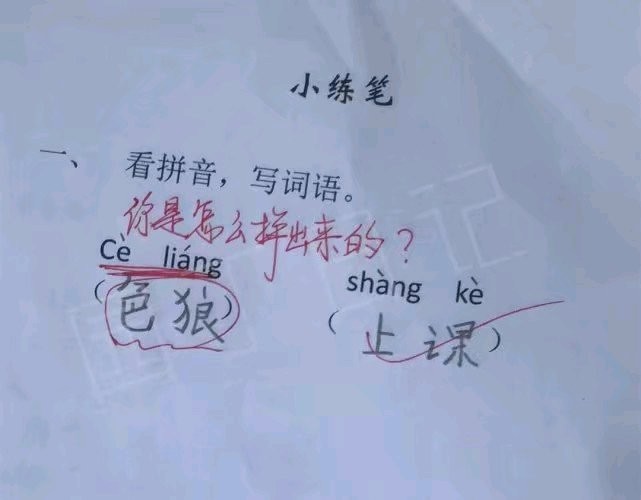 小练笔
一、 看拼音，写词语。
你是怎么拼出来的？
Cè liáng shàng kè
(色狼) (上课)